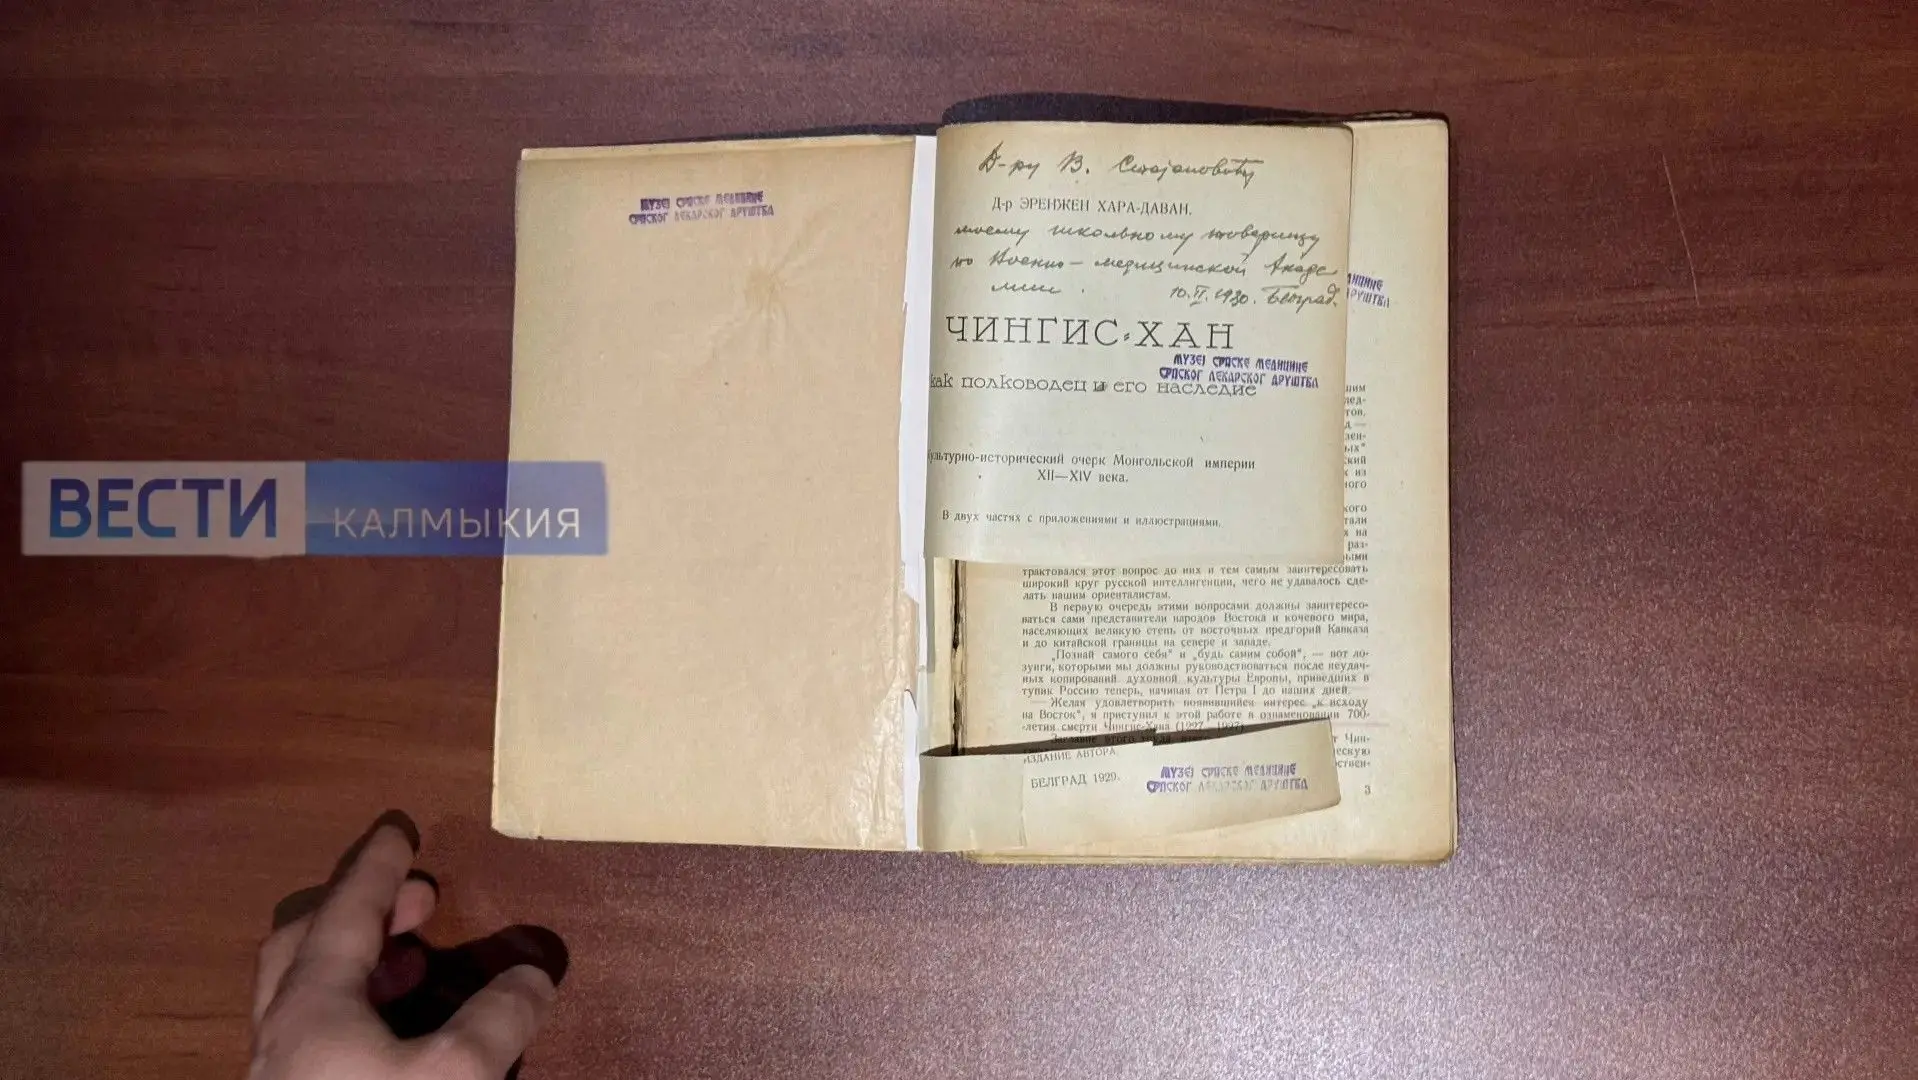 ВЕСТИ КАЛМЫКИЯ
МУЗЕЈ СРПСКЕ МЕДИЦИНЕ
СРПСКОГ ЛЕКАРСКОГ ДРУШТВА
Д-ру В. Стојановићу
Д-р ЭРЕНЖЕН ХАРА-ДАВАН.
моему школьному товарищу
по Военно-медицинской Акаде
мии.
10.II.1930. Београд.
ЧИНГИС-ХАН
как полководец и его наследие
МУЗЕЈ СРПСКЕ МЕДИЦИНЕ
СРПСКОГ ЛЕКАРСКОГ ДРУШТВА
ультурно-исторический очерк Монгольской империи
XII—XIV века.
В двух частях с приложениями и иллюстрациями.
трактовался этот вопрос до них и тем самым заинтересовать
широкий круг русской интеллигенции, чего не удавалось сде-
лать нашим ориенталистам.
В первую очередь этими вопросами должны заинтересо-
ваться сами представители народов Востока и кочевого мира,
населяющих великую степь от восточных предгорий Кавказа
и до китайской границы на севере и западе.
„Познай самого себя“ и „будь самим собой“, — вот ло-
зунги, которыми мы должны руководствоваться после неудач-
ных копирований духовной культуры Европы, приведших в
тупик Россию теперь, начиная от Петра I до наших дней.
Желая удовлетворить появившийся интерес „к исходу
на Восток“, я приступил к этой работе в ознаменовании 700-
-летия смерти Чингис-Хана
ИЗДАНИЕ АВТОРА.
БЕЛГРАД 1929.
МУЗЕЈ СРПСКЕ МЕДИЦИНЕ
СРПСКОГ ЛЕКАРСКОГ ДРУШТВА
3